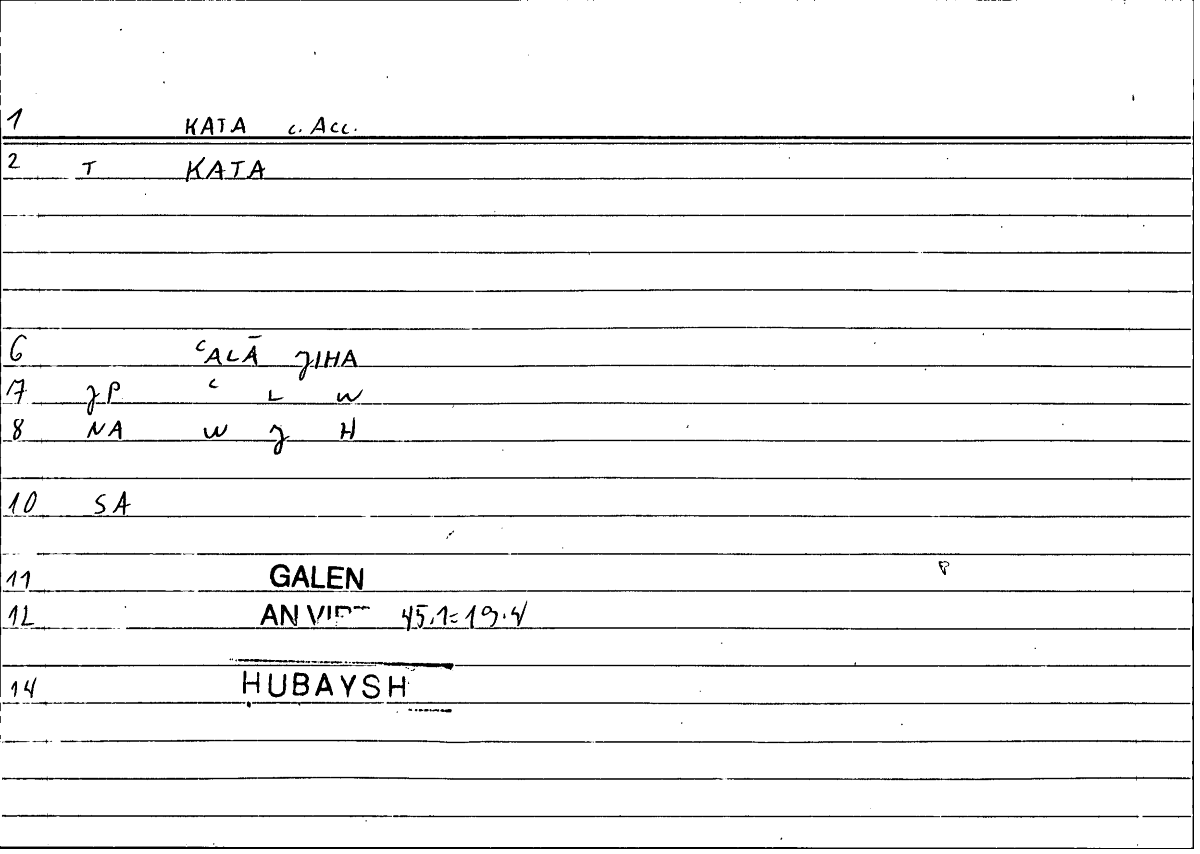 1 KATA c. Acc.
2 T KATA
6 ʿALĀ ȜIHA
7 ȝP ʿ L W
8 NA W ȝ H
10 SA
11 GALEN
12 AN VIRT 45.1=19.4
14 HUBAYSH